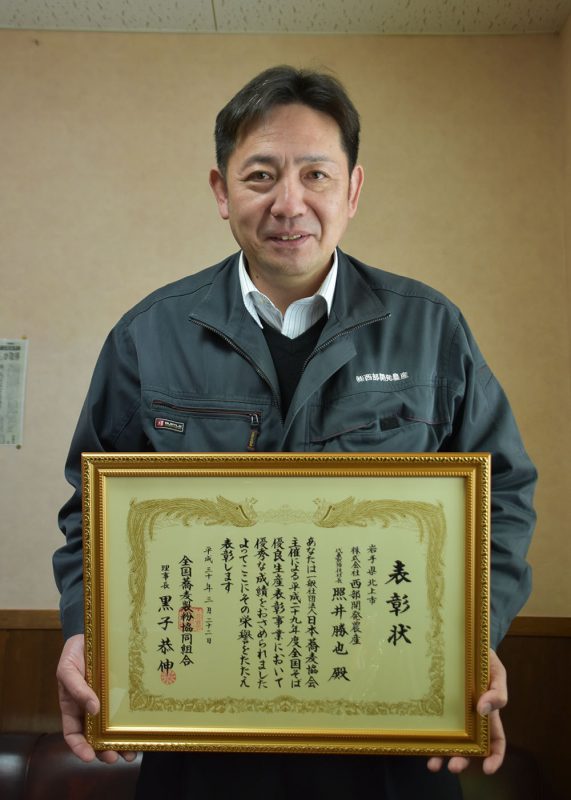 ㈱西部開発農産
表彰状
岩手県北上市
株式会社 西部開発農産
代表取締役社長 照井勝也 殿
あなたは一般社団法人日本蕎麦協会
主催による平成二十九年度全国そば
優良生産表彰事業において
優秀な成績をおさめられました
よってここにその栄誉をたたえ
表彰します
平成三十年三月二十二日
全国蕎麦製粉協同組合
理事長 黒子恭伸